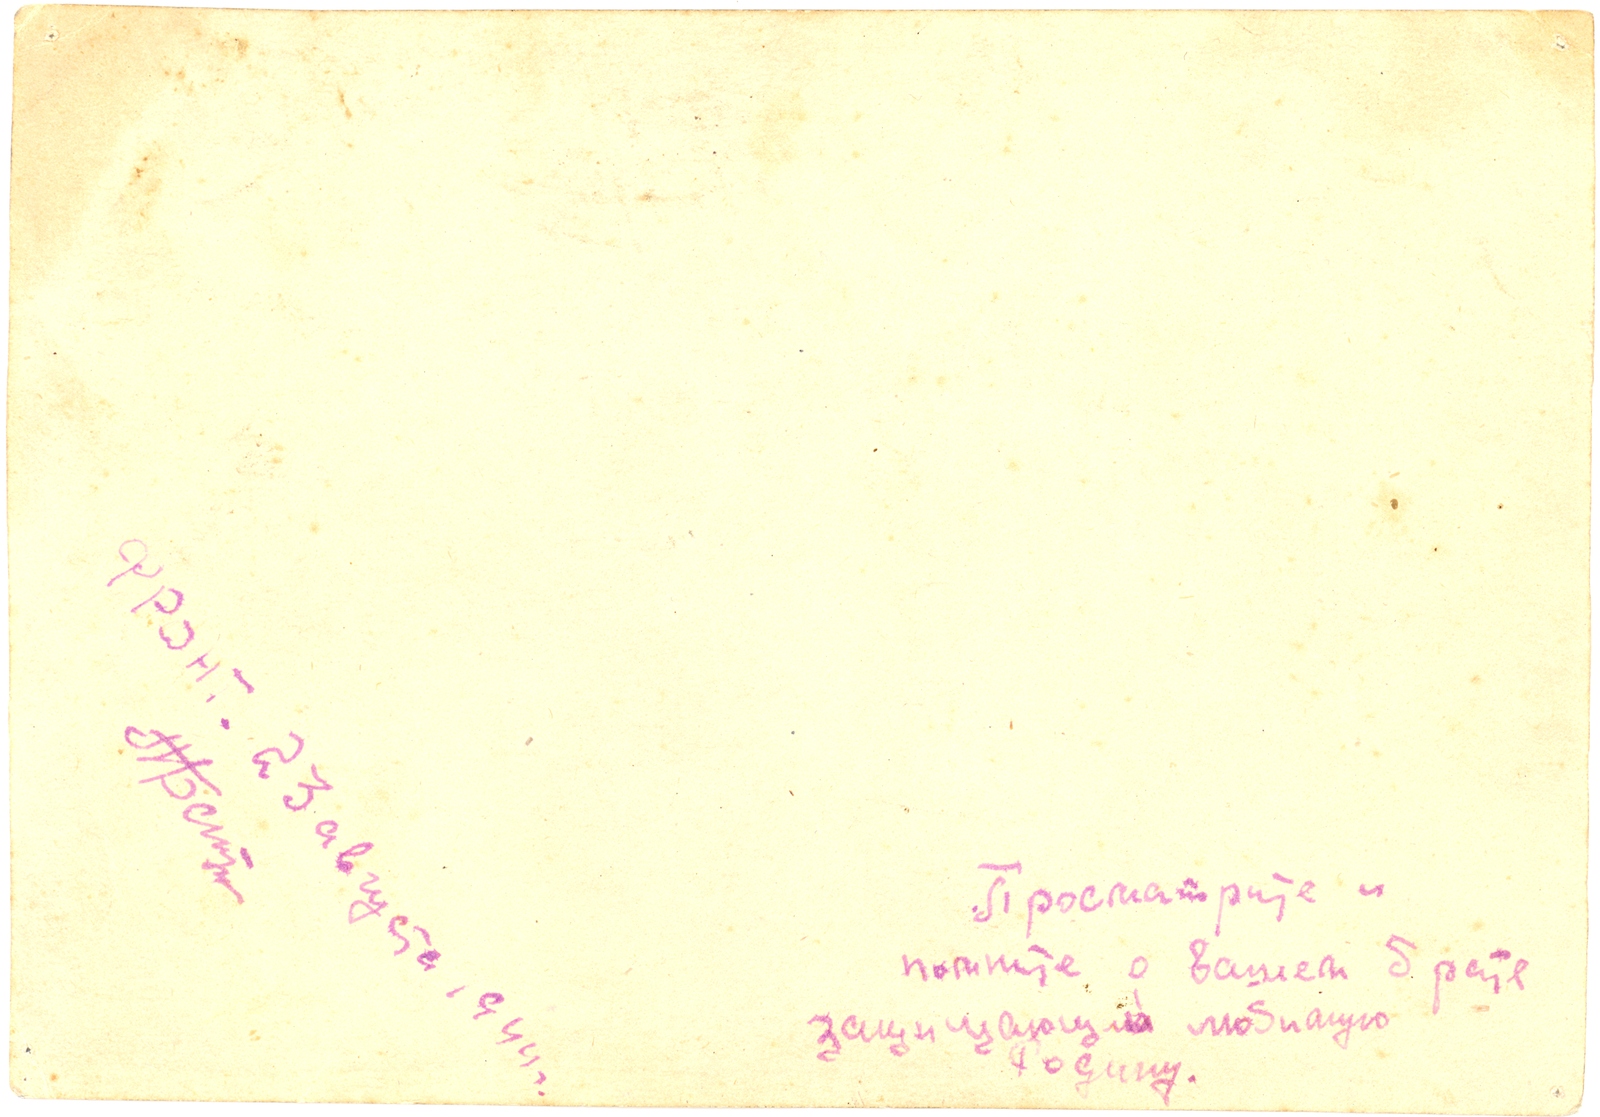 фронт. 23 августа 1944г.
Просматрите и
помните о вашем брате
защищающий любимую
Родину.